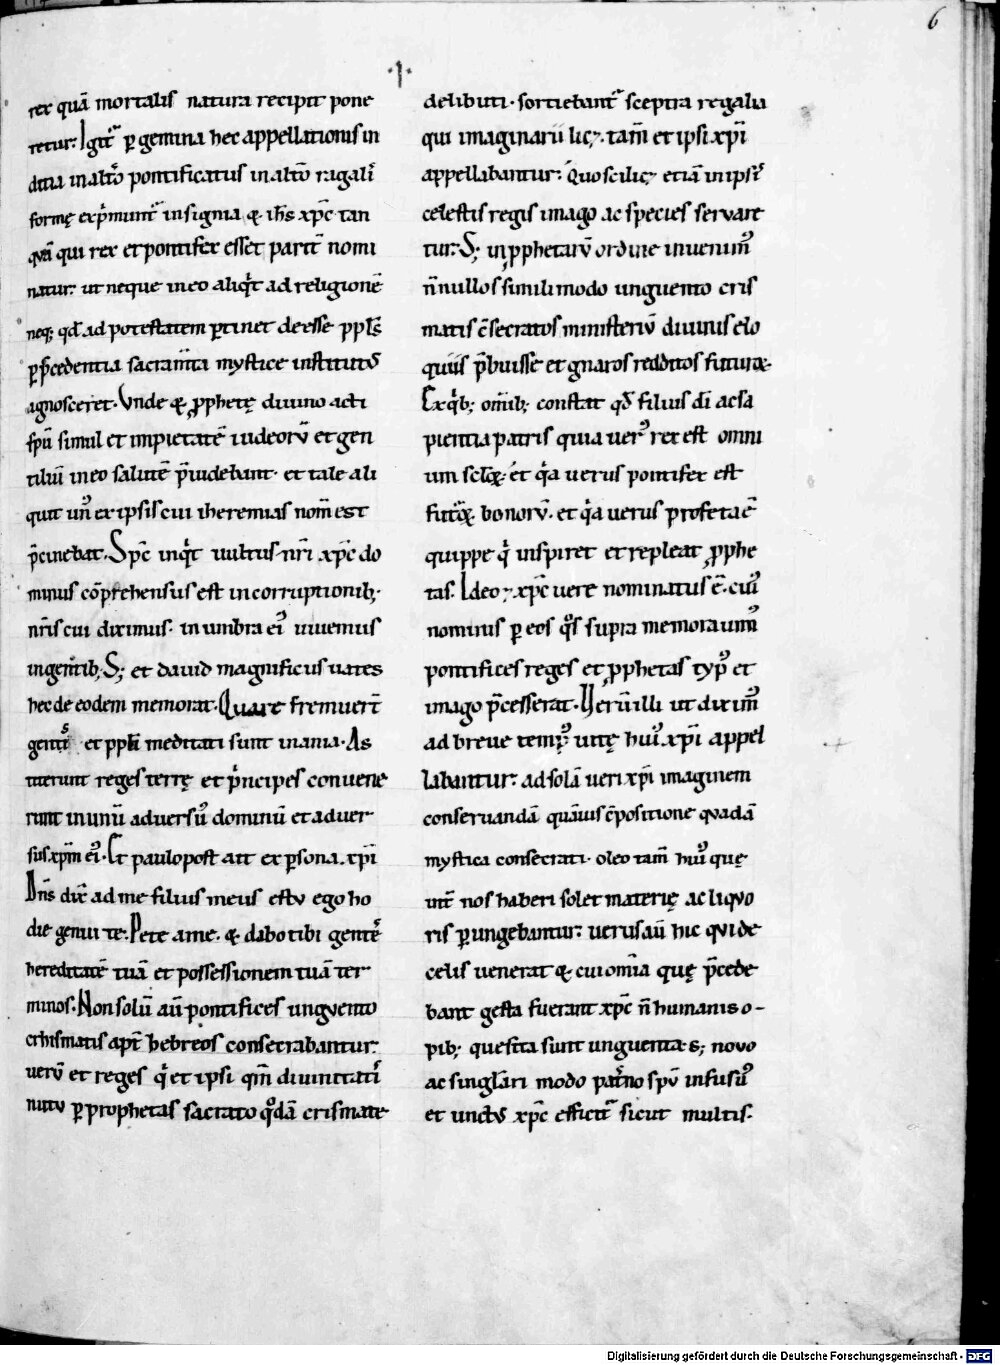 6
·I·
rex quā mortalis natura recipit pone
retur. Igit᷑ ꝑ gemina hec appellationis in
dicia in alt̄o pontificatus in alt̄o rạgalıͥ
formę exp̄munt᷑ insignia ⁊ ih̅s xp̅c tan
quā qui rex et pontifex esset parit̄ nomi
natur. ut neque in eo aliqͥt ad religionē
neq; qd̄ ad potestatem ꝑtinet deesse ppl̅s
ꝑ p̄cedentia sacram̅ta mystice institutꝰ
agnosceret. Vnde ⁊ ꝓphetę diuino acti
sp̅u simul et impietatē iudeorū et gen
tiliū in eo salutē p̄uidebant. et tale ali
quit un̅ ex ipsis cui iheremias nom̅ est
p̄cinebat. Sp̅c inqͥt uultus nr̅i xp̅c do
minus cōp̱rehensus est in corruptionib;
nr̅is cui diximus. in umbra eiꝰ uiuemus
in gentib; S; et dauid magnificus uates
hec de eodem memorat. Quare fremuer̅t
gentͥs et ppl̅i meditati sunt inania. As
titerunt reges terrę et pͥncipes conuene
runt in unū aduersū dominū et aduer
sus xp̅m eiꝰ. Et paulo post ait ex ꝑsona xp̅i
Dn̅s dix̅ ad me filius meus es tu ego ho
die genui te. Pete a me. ⁊ dabo tibi gentē
hereditatē tuā et possessionem tuā ter
minos. Non solū aū pontifices unguento
crhismatis apt̅ hebreos consecrabantur.
uerū et reges qͥ et ipsi qm̅ diuinitatͥ
nutu ꝑ prophetas sacrato qͦdā crismate
delibuti. sortiebant᷑ sceptra regalia
qui imaginarii lic&. tam̅ et ipsi xp̅i
appellabantur. Quos scilic& etiā in ipsͥ
celestis regis imago ac species seruare
tur. S; in ꝓphetarū ordine inuenimꝰ
n̅nullos simili modo unguento cris
matis c̅secratos ministeriū diuinis elo
quiis p̄buisse et gnaros redditos futuroꝝ.
Ex qͥb; om̅ib; constat qd̄ filius di̅ ac sa
pientia patris quia uerꝰ rex est omni
um scl̅oꝝ. et qͥa uerus pontifex est
futͦꝝ bonorū. et qͥa uerus profeta ē
quippe qͥ inspiret et repleat ꝓphe
tas. Ideo & xp̅c uere nominatus ē. cuiꝰ
nominis ꝑ eos qͦs supra memorauimꝰ
pontifices reges et ꝓphetas typꝰ et
imago p̄cesserat. Verū illi ut diximꝰ
ad breue tempꝰ uitę huiꝰ xp̅i appel
labantur. ad solā ueri xp̅i imaginem
conseruandā quāuis c̅positione quadā
mystica consecrati. oleo tam̅ huiꝰ quę
int̅ nos haberi solet materię ac liquo
ris ꝑungebantur. uerus aū hic qui de
celis uenerat ⁊ cui om̅ia quę p̄cede
bant gesta fuerant xp̅c n̅ humanis o-
pib; quesita sunt unguenta. s; nouo
ac singlari modo pat̅no spū infusꝰ
et unctꝰ xp̅c efficit᷑ sicut multis.
Digitalisierung gefördert durch die Deutsche Forschungsgemeinschaft - DFG